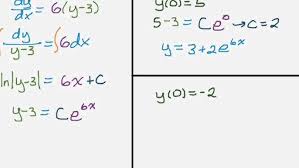 dy/dx = 6(y-3)
∫dy/y-3 = ∫6dx
ln|y-3| = 6x+C
y-3 = Ce^6x
y(0)=5
5-3 = Ce^0 → C=2
y = 3+2e^6x
y(0)=-2